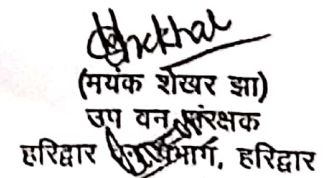 (मयंक शेखर झा)
उप वन संरक्षक
हरिद्वार वन प्रभाग, हरिद्वार